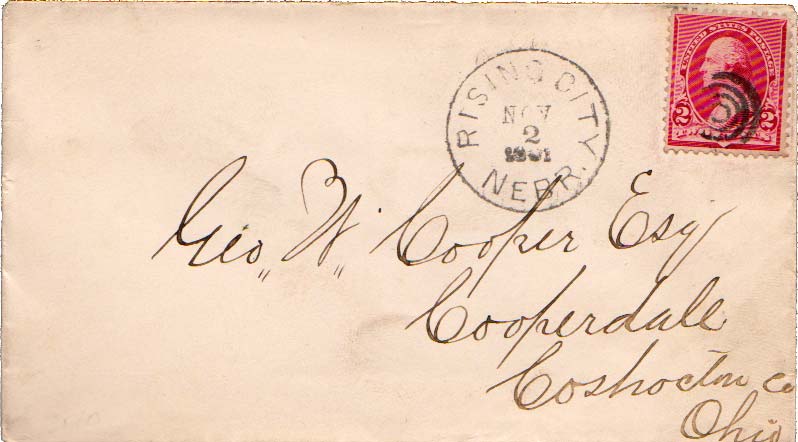 UNITED STATES POSTAGE
2 2
RISING CITY
NOV
2
NEBR.
Geo. W. Cooper Esq
Cooperdale
Coshocton Co
Ohio